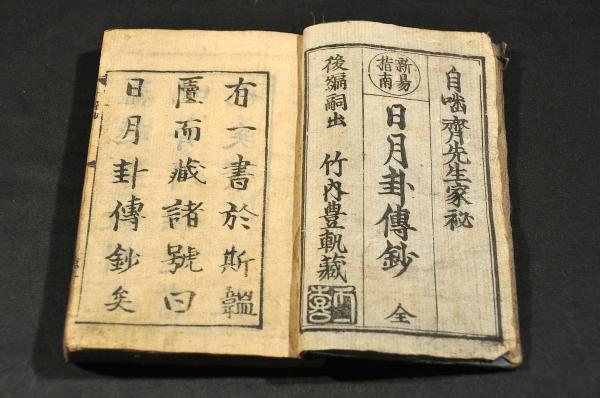 自啮齊先生家祕
新易
指南
日月卦傳鈔
全
後編嗣出
竹内豊軌藏
有一書於斯韞
匵而藏諸號曰
日月卦傳鈔矣